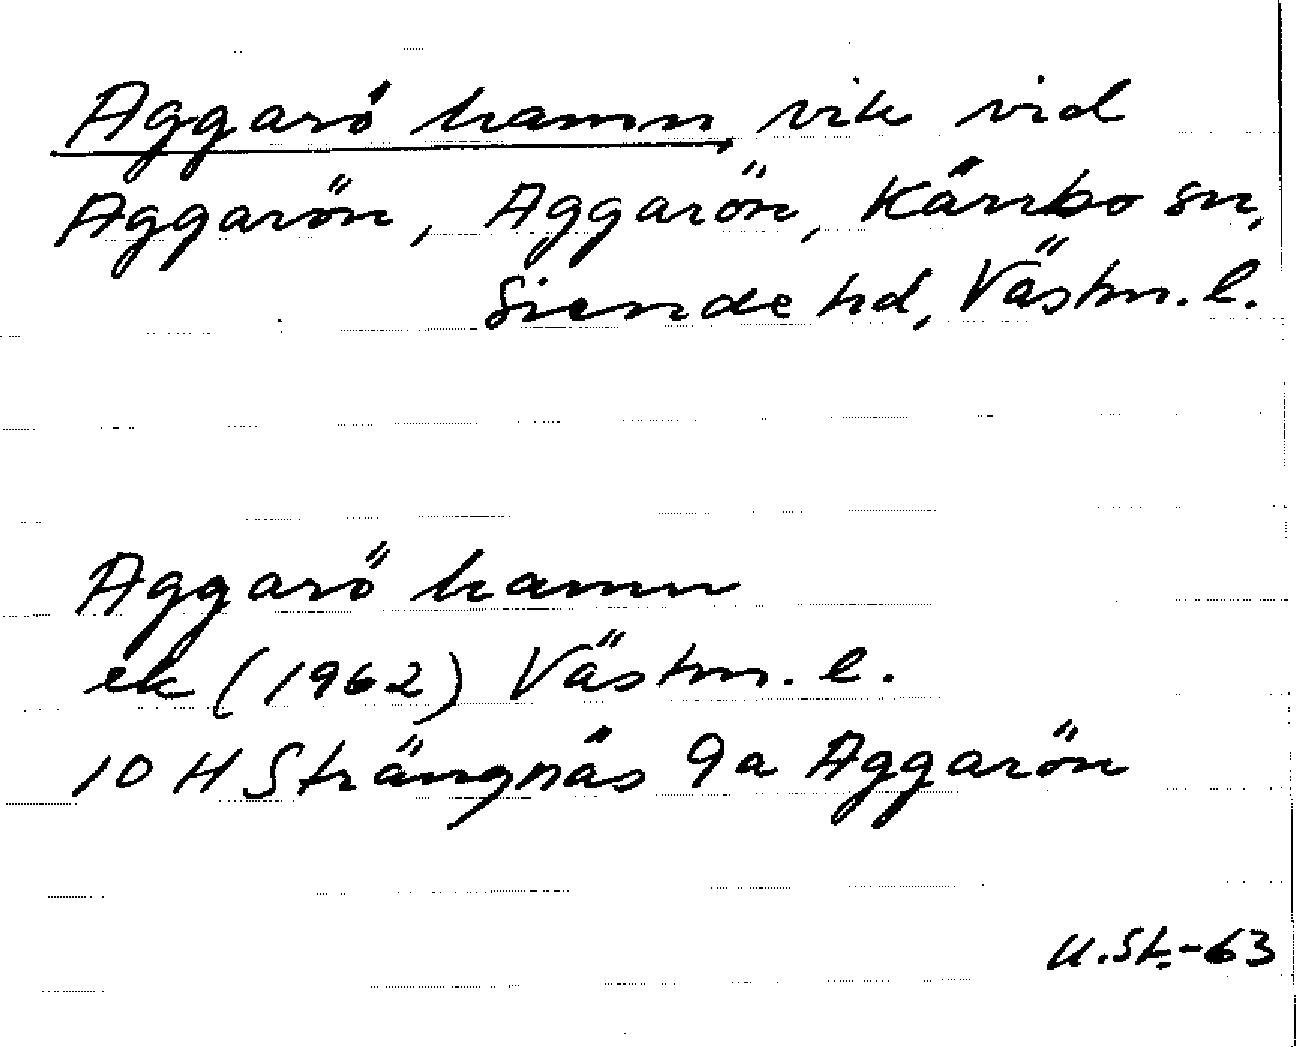 Aggarö hamn, vik vid
Aggarön, Aggarön, Kärrbo sn,
Siende hd, Västm. l.
Aggarö hamn
ek (1962) Västm. l.
10 H Strängnäs 9a Aggarön
U.St.-63